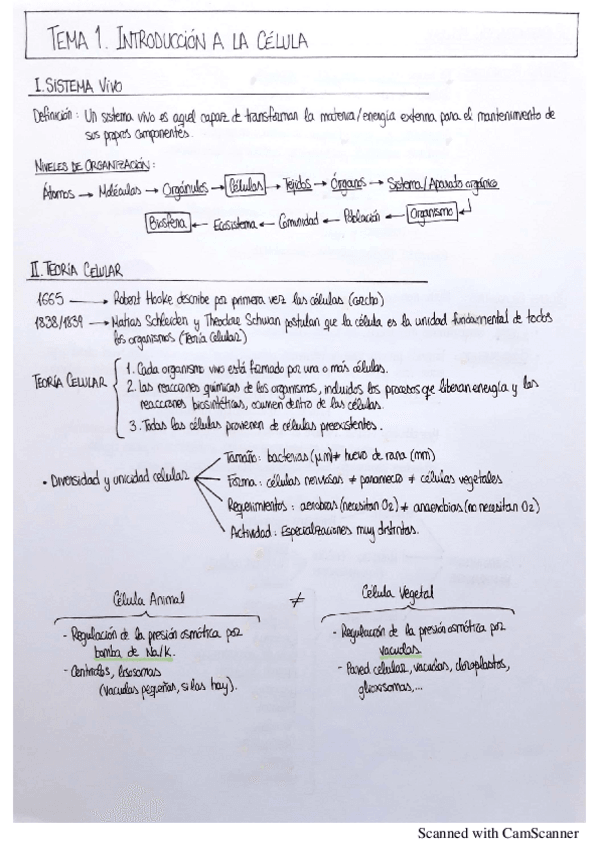 TEMA 1. INTRODUCCIÓN A LA CÉLULA
I. SISTEMA VIVO
Definición: Un sistema vivo es aquel capaz de transformar la materia/energía externa para el mantenimiento de
sus propios componentes.
NIVELES DE ORGANIZACIÓN:
Átomos → Moléculas → Orgánulos → Células → Tejidos → Órganos → Sistema/Aparato orgánico
Biosfera ← Ecosistema ← Comunidad ← Población ← Organismo
II. TEORÍA CELULAR
1665 → Robert Hooke describe por primera vez las células (corcho)
1838/1839 → Matias Schleiden y Theodore Schwan postulan que la célula es la unidad fundamental de todos
los organismos (Teoría Celular)
TEORÍA CELULAR
1. Cada organismo vivo está formado por una o más células.
2. Las reacciones químicas de los organismos, incluidos los procesos que liberan energía y las
reacciones biosintéticas, ocurren dentro de las células.
3. Todas las células provienen de células preexistentes.
• Diversidad y unicidad celular
Tamaño: bacterias (μm) ≠ huevo de rana (mm)
Forma: células nerviosas ≠ paramecio ≠ células vegetales
Requerimientos: aerobias (necesitan O2) ≠ anaerobias (no necesitan O2)
Actividad: Especializaciones muy distintas.
Célula Animal ≠ Célula Vegetal
- Regulación de la presión osmótica por
bomba de Na/K.
- Centriolos, lisosomas
(vacuolas pequeñas, si las hay).
- Regulación de la presión osmótica por
vacuolas.
- Pared celular, vacuolas, cloroplastos,
glioxisomas,...
Scanned with CamScanner